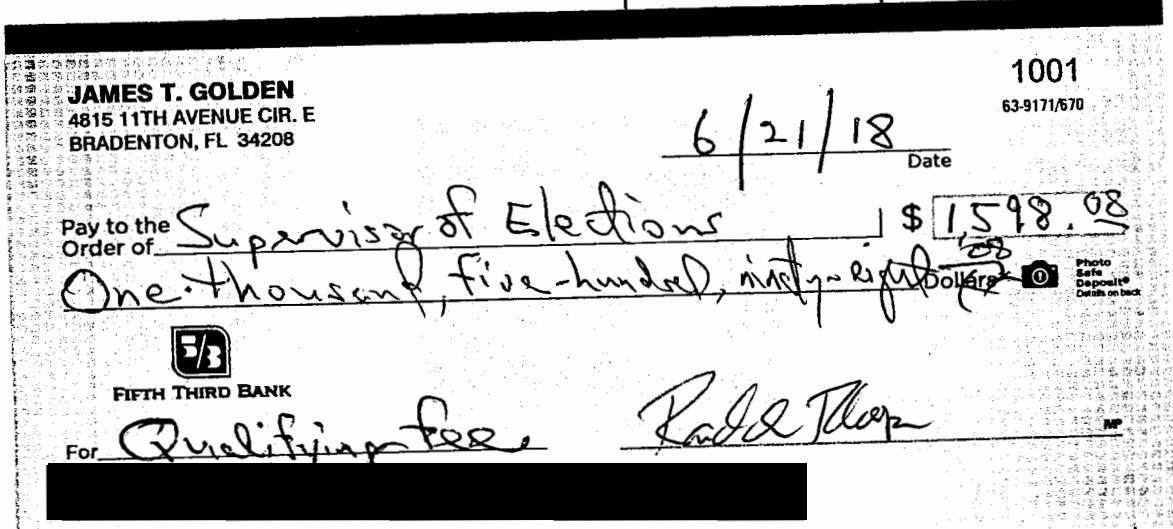 1001
JAMES T. GOLDEN
4815 11TH AVENUE CIR. E
BRADENTON, FL 34208
63-9171/670
6/21/18
Date
Pay to the Order of Supervisor of Elections $ 1,598.08
One-thousand, five-hundred, ninety-eight 08 Dollars
Photo Safe Deposit® Details on back
5/3
FIFTH THIRD BANK
For Qualifying fee
MP